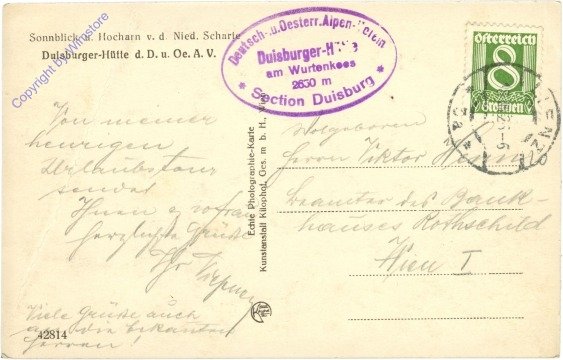 Sonnblick u. Hocharn v. d. Nied. Scharte
Duisburger-Hütte d. D. u. Oe. A. V.
Copyright by Winstore
Deutsch- u. Oesterr. Alpen-Verein
Duisburger-Hütte
am Wurtenkees
2630 m
* Section Duisburg *
Österreich
8
Groschen
LIENZ
Von meiner
heurigen
Urlaubstour
sendet
Ihnen
herzlichste Grüße
Ihr
Viele Grüße auch
an die bekannten
Herren!
42814
Echte Photographie-Karte
Kunstanstalt Kilophot, Ges. m. b. H., Wien
Wolgeboren
Herrn Viktor
Beamter des Bank-
hauses Rothschild
Wien I